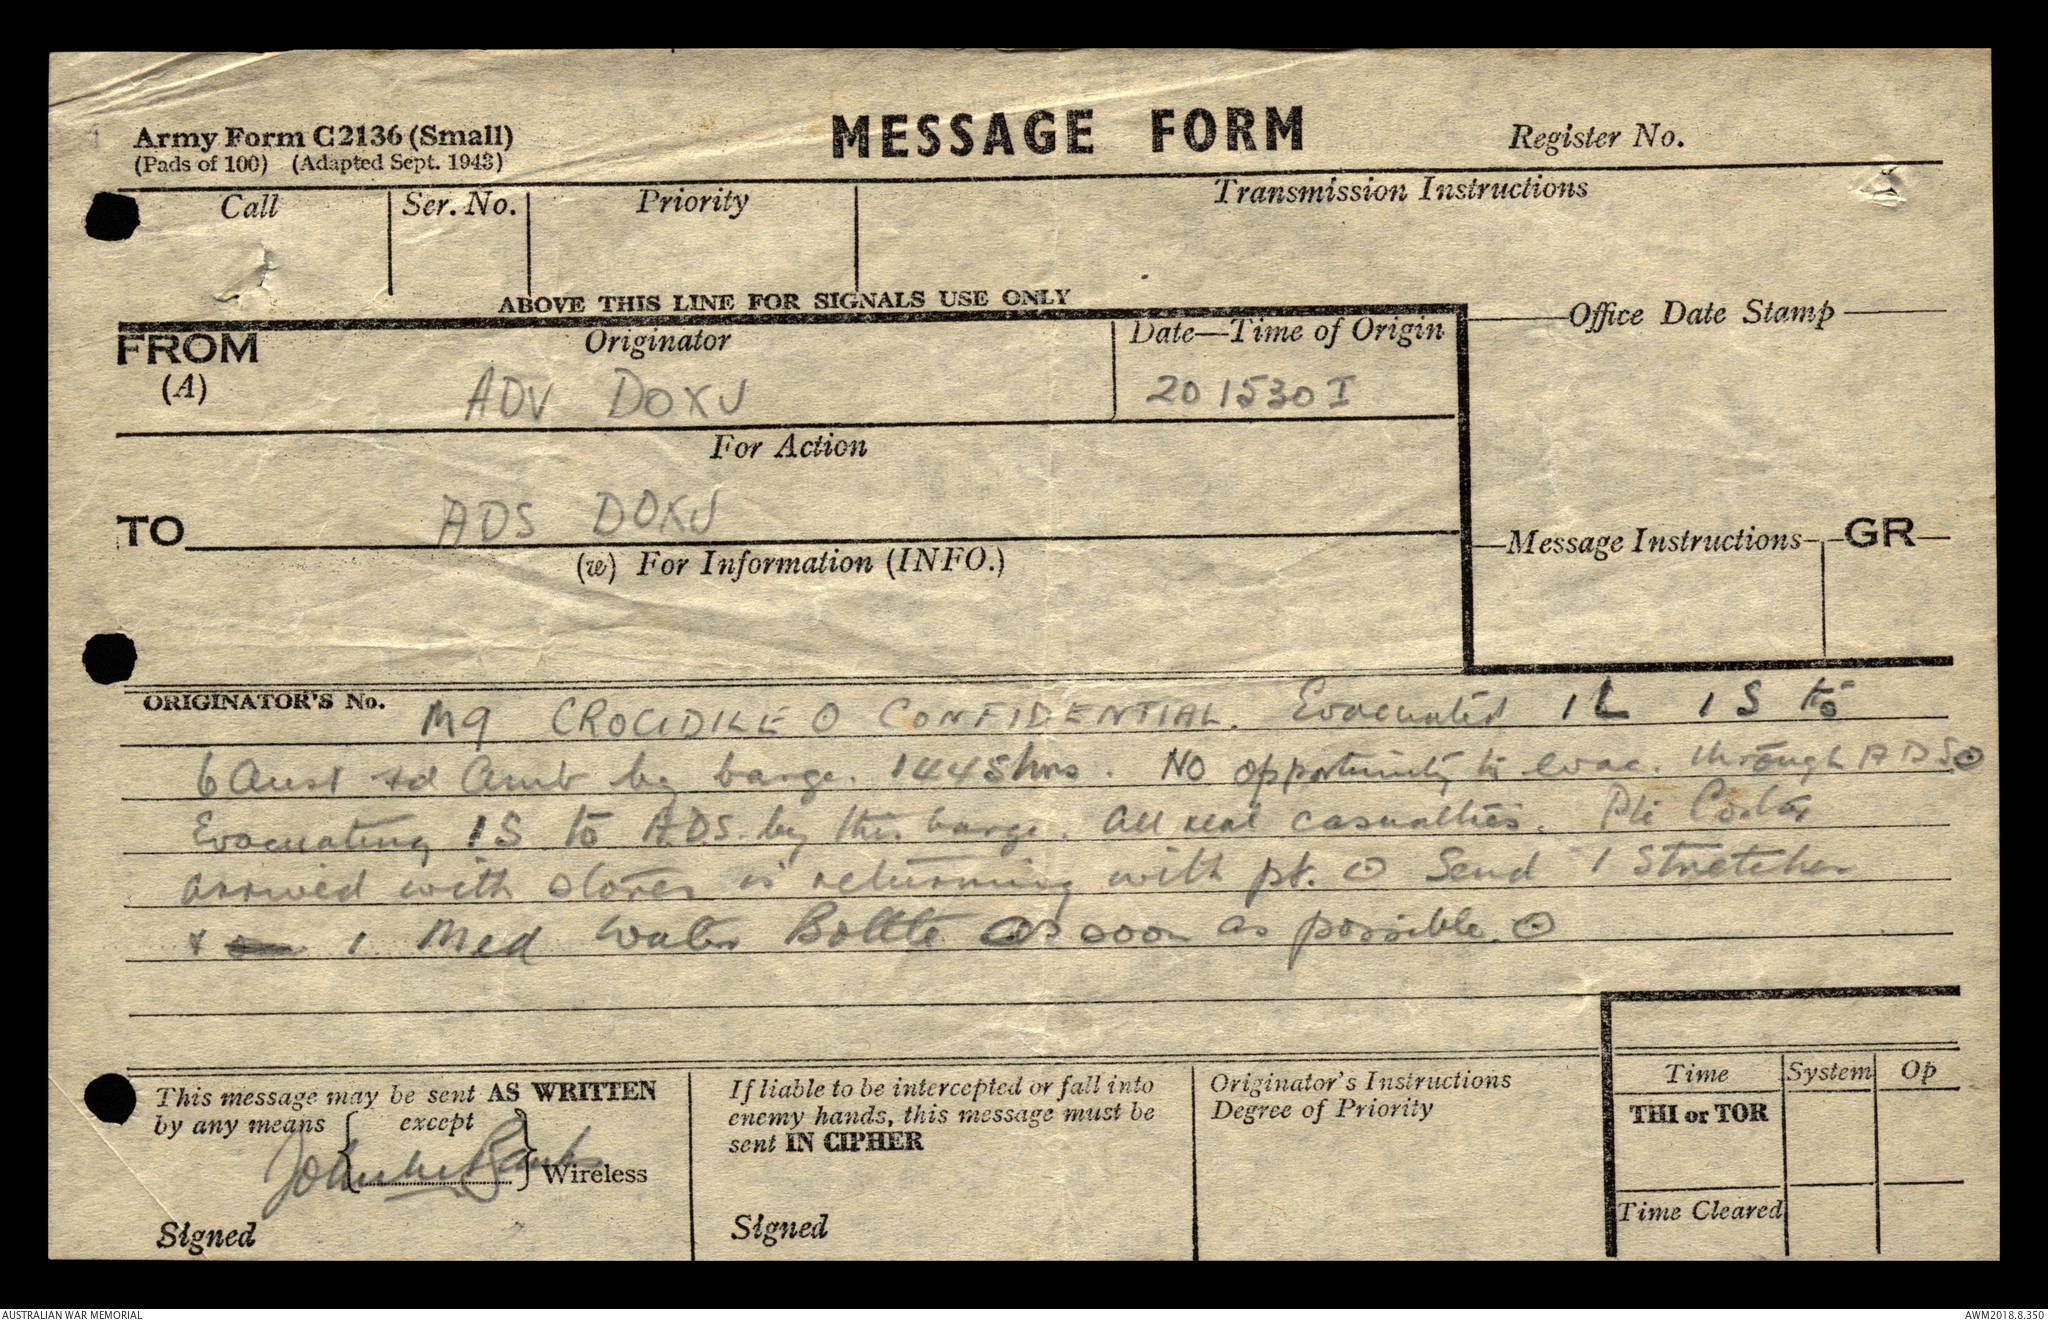 Army Form C2136 (Small)
(Pads of 100) (Adapted Sept. 1943)
MESSAGE FORM
Register No.
Call
Ser. No.
Priority
Transmission Instructions
ABOVE THIS LINE FOR SIGNALS USE ONLY
FROM
(A)
Originator
ADV DOXU
Date—Time of Origin
20 1530 I
Office Date Stamp
For Action
TO
ADS DOXU
(w) For Information (INFO.)
Message Instructions
GR
ORIGINATOR'S No.
M9 CROCIDILE ⊙ CONFIDENTIAL. Evacuated 1 L 1 S to
6 Aust Fd Amb by barge. 1445 hrs. No opportunity to evac. through ADS ⊙
Evacuating 1 S to ADS. by this barge. All real casualties. Pte
arrived with stores is returning with pt. ⊙ Send 1 Stretcher
+ 1 Med Water Bottle as soon as possible. ⊙
This message may be sent AS WRITTEN
by any means except
Wireless
Signed
If liable to be intercepted or fall into
enemy hands, this message must be
sent IN CIPHER
Signed
Originator's Instructions
Degree of Priority
Time
System
Op
THI or TOR
Time Cleared
AUSTRALIAN WAR MEMORIAL
AWM2018.8.350